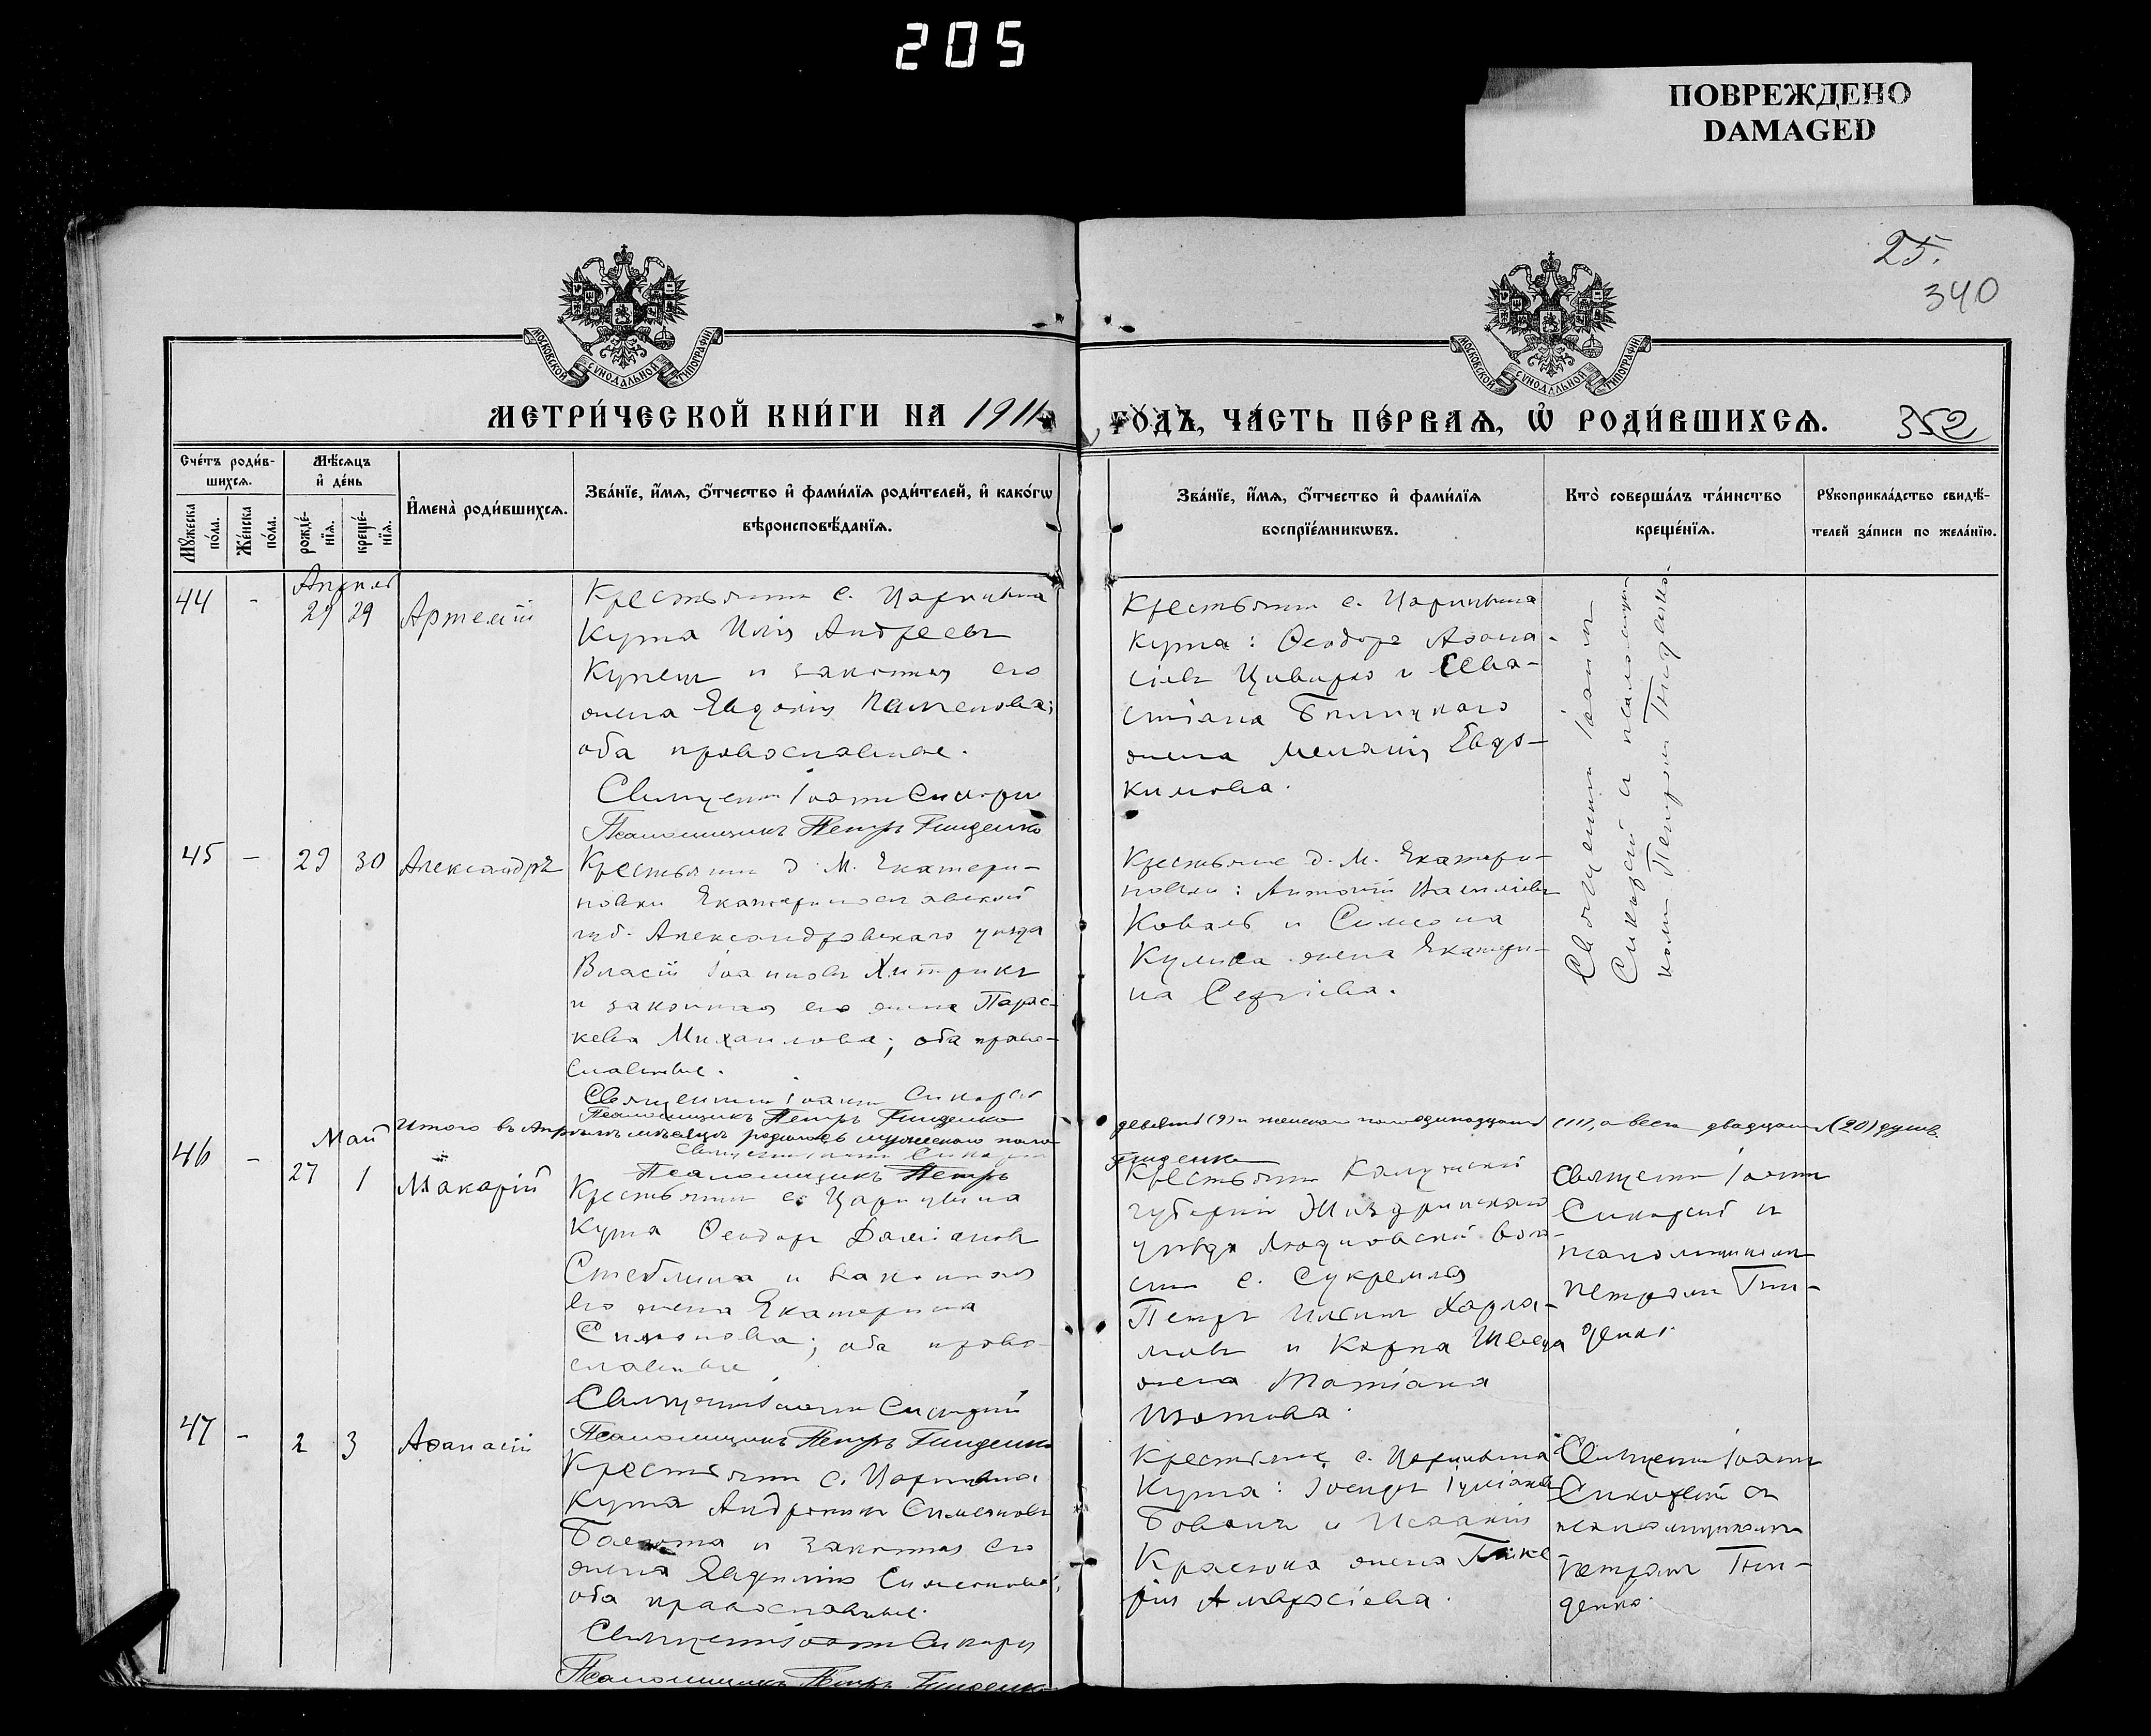 205
ПОВРЕЖДЕНО
DAMAGED
25.
340
МОСКОВСКОЙ СѴНОДАЛЬНОЙ ТИПОГРАФІИ
МОСКОВСКОЙ СѴНОДАЛЬНОЙ ТИПОГРАФІИ
МЕТРИ́ЧЕСКОЙ КНИ́ГИ НА 1911
ГО́ДЪ, ЧА́СТЬ ПЕ́РВАѦ, Ѡ҆ РОДИ́ВШИХСѦ.
352
Сче́тъ роди́в-
шихсѧ.
Мꙋ́жеска по́ла.
Же́нска по́ла.
Мѣ́сѧцъ
и҆ де́нь
рожде́-нїѧ.
креще́-нїѧ.
И҆мена̀ роди́вшихсѧ.
Зва́нїе, и҆́мѧ, ѻ҆́тчество и҆ фами́лїѧ роди́телей, и҆ како́гѡ
вѣроисповѣ́данїѧ.
Зва́нїе, и҆́мѧ, ѻ҆́тчество и҆ фами́лїѧ
воспрїе́мникѡвъ.
Кто̀ соверша́лъ та́инство
креще́нїѧ.
Рꙋкоприкла́дство свидѣ́-
телей за́писи по жела́нїю.
Апрель
44 - 29 29 Артемій
Крестьянинъ с. Царицына
Кута Илія Андреевъ
и законная его
жена Евдокія
оба православные.
Священникъ Іоаннъ Сикорскій
Псаломщикъ Петръ Гниденко
Крестьянинъ с. Царицына
Кута: Ѳеодоръ Аѳана-
сіевъ и Сева-
стіана Билицкаго
жена Меланія Евдо-
кимова.
Священникъ Іоаннъ
Сикорскій и псаломщи-
комъ Петромъ Гниденко.
45 - 29 30 Александръ
Крестьянинъ д. М. Екатери-
новки Екатеринославской
губ. Александровскаго уѣзда
Власій Іоанновъ Хитрикъ
и законная его жена Парас-
кева Михаилова; оба право-
славные.
Священникъ Іоаннъ Сикорскій
Псаломщикъ Петръ Гниденко
Крестьяне д. М. Екатери-
новки: Антоній Василіевъ
Коваль и Симеона
Кулиса жена Екатери-
на Сергіева.
Итого въ Апрѣлѣ мѣсяцѣ родилось мужескаго пола
девять (9) и женскаго пола одинадцать (11), а всего двадцать (20) душъ.
Священникъ Іоаннъ Сикорскій
Псаломщикъ Петръ
Гниденко
Май
46 - 27 1 Макарій
Крестьянинъ с. Царицына
Кута Ѳеодоръ Даміановъ
Стеблина и законная
его жена Екатерина
Симонова; оба право-
славные
Священникъ Іоаннъ Сикорскій
Псаломщикъ Петръ Гниденко
Крестьянинъ Калужской
губерніи Жиздринскаго
уѣзда Людиновской воло-
сти с. Сукремля
Петръ Харла-
мовъ и Карпа Швеца
жена Татіана
Изотова.
Священникъ Іоаннъ
Сикорскій и
псаломщикомъ
Петромъ Гни-
денко.
47 - 2 3 Аѳанасій
Крестьянинъ с. Царицына
Кута Андроникъ Симеоновъ
и законная его
жена Евфимія Симеонова;
оба православные.
Священникъ Іоаннъ Сикорскій
Псаломщикъ Петръ Гниденко
Крестьяне с. Царицына
Кута: Іосифъ Іуліановъ
и Исаакія
жена Глике-
рія Амвросіева.
Священникъ Іоаннъ
Сикорскій съ
псаломщикомъ
Петромъ Гни-
денко.